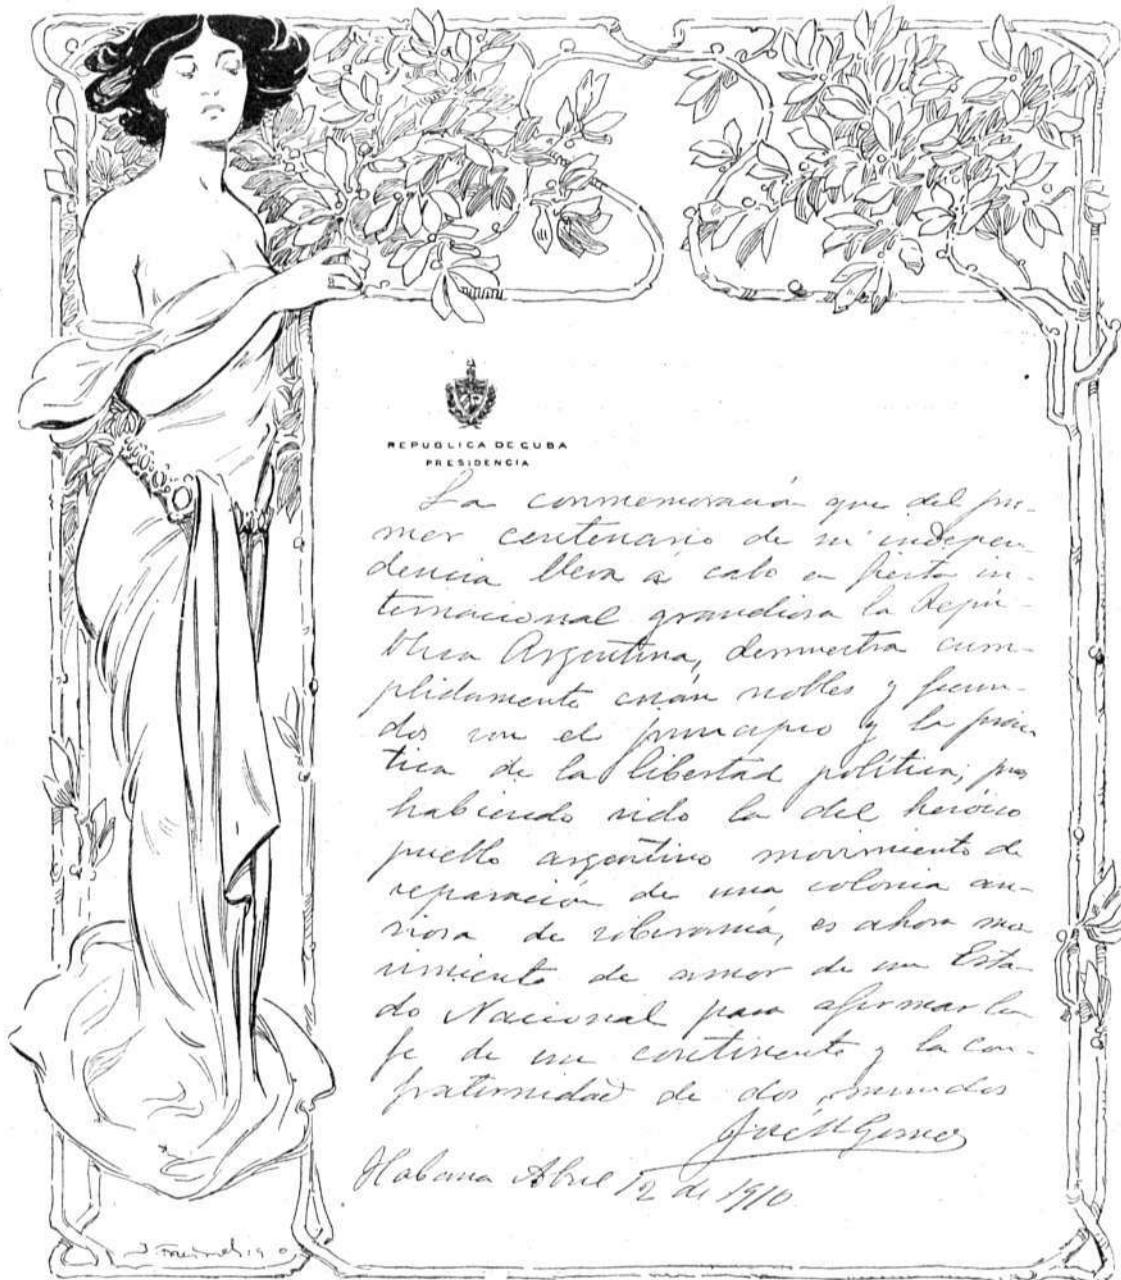 REPUBLICA DE CUBA
PRESIDENCIA
La conmemoración que del pri-
mer centenario de su indepen-
dencia lleva á cabo en fiesta in-
ternacional grandiosa la Repú-
blica Argentina, demuestra cum-
plidamente cuán nobles y fecun-
dos son el principio y la prác-
tica de la libertad política; pues
habiendo sido la del heróico
pueblo argentino movimiento de
separación de una colonia an-
siosa de soberanía, es ahora mo
vimiento de amor de un Esta-
do Nacional para afirmar la
fe de un continente y la con-
fraternidad de dos mundos
José M Gomez
Habana Abril 12 de 1910